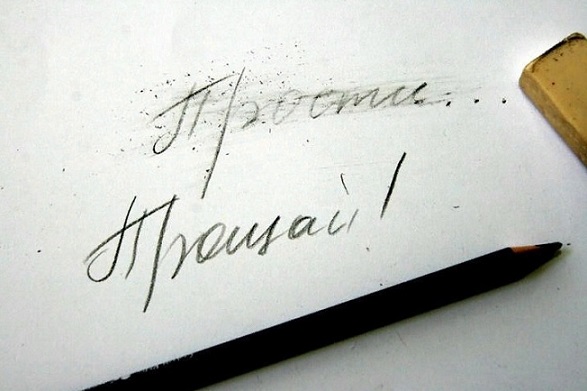 Прости...
Прощай!